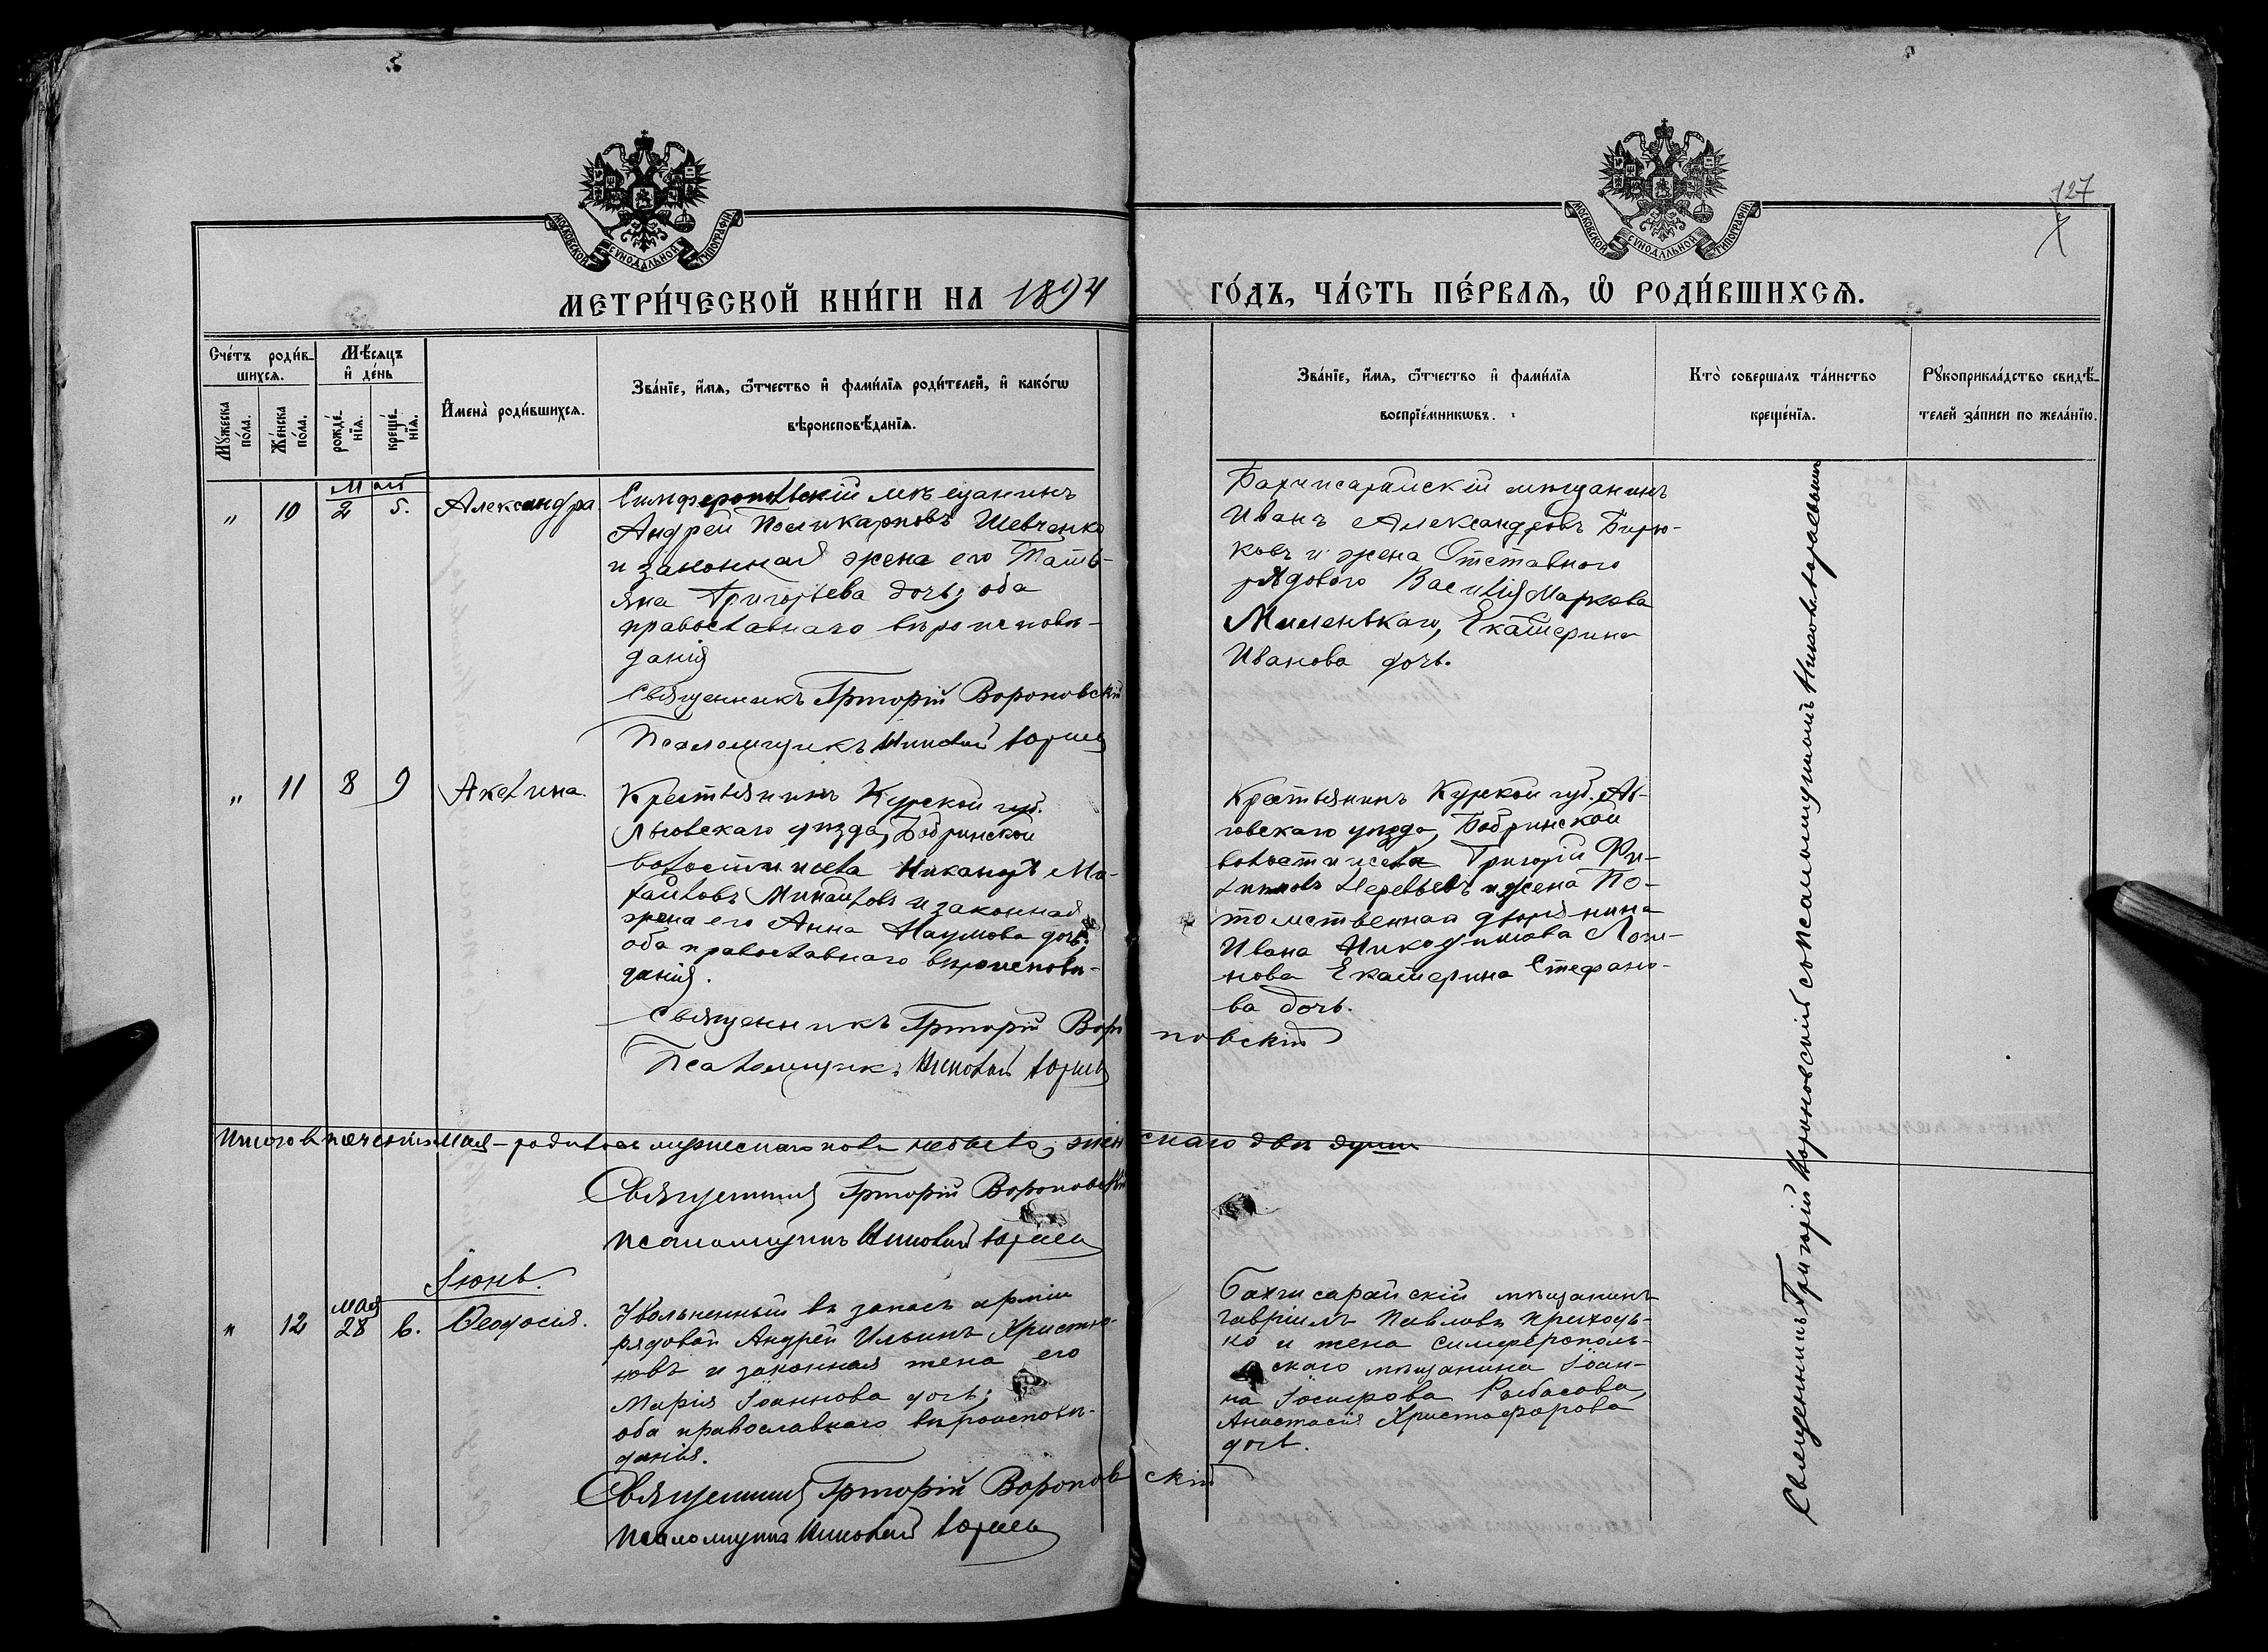 127
МОСКОВСКОЙ СѴНОДАЛЬНОЙ ТИПОГРАФІИ
МОСКОВСКОЙ СѴНОДАЛЬНОЙ ТИПОГРАФІИ
МЕТРИ́ЧЕСКОЙ КНИ́ГИ НА 1894
ГО́ДЪ, ЧА́СТЬ ПЕ́РВАѦ, Ѡ РОДИ́ВШИХСѦ.
Сче́тъ роди́в-
шихсѧ.
Мꙋ́жеска по́ла.
Же́нска по́ла.
Мѣ́сѧцъ
и де́нь
рожде́-
нїѧ.
креще́-
нїѧ.
Имена̀ роди́вшихсѧ.
Зва́нїе, и́мѧ, ѻ́тчество и фами́лїѧ роди́телей, и како́гѡ
вѣроисповѣ́данїѧ.
Зва́нїе, и́мѧ, ѻ́тчество и фами́лїѧ
воспрїе́мникѡвъ.
Кто̀ соверша́лъ та́инство
креще́нїѧ.
Рꙋкоприкла́дство свидѣ́-
телей за́писи по жела́нїю.
Май
„ 10 2 5. Александра.
Симферопольскій мѣщанинъ
Андрей Поликарповъ Шевченко
и законная жена его Тать-
яна Григорьева дочь; оба
православнаго вѣроисповѣ-
данія
Священникъ Григорій Вороновскій
Псаломщикъ
Бахчисарайскій мѣщанинъ
Иванъ Александровъ Бирю-
ковъ и жена Отставного
рядового Василія Маркова
Миленькаго, Екатерина
Иванова дочь.
„ 11 8 9 Акелина.
Крестьянинъ Курской губ.
Льговскаго уѣзда, Бобринской
волости и села Никаноръ Ми-
хайловъ Михайловъ и законная
жена его Анна Наумова дочь;
оба православнаго вѣроисповѣ-
данія.
Священникъ Григорій Вороновскій
Псаломщикъ
Крестьянинъ Курской губ. Ль-
говскаго уѣзда, Бобринской
волости и села Григорій Фи-
липповъ и жена По-
томственнаго дворянина
Ивана Никодимова Логи-
нова Екатерина Стефано-
ва дочь.
Итого въ теченіи Мая – родилось мужескаго пола не было; женскаго двѣ души
Священникъ Григорій Вороновскій
псаломщикъ
Іюнь.
мая
„ 12 28 6. Ѳеодосія.
Уволенный въ запасъ арміи
рядовой Андрей Ильинъ Христю-
новъ и законная жена его
Марія Іоаннова дочь;
оба православнаго вѣроисповѣ-
данія.
Священникъ Григорій Вороновскій
псаломщикъ
Бахчисарайскій мѣщанинъ
Гавріилъ Павловъ Приходь-
ко и жена симферополь-
скаго мѣщанина Іоан-
на Іосифова
Анастасія Христофорова
дочь.
Священникъ Григорій Вороновскій съ псаломщикомъ